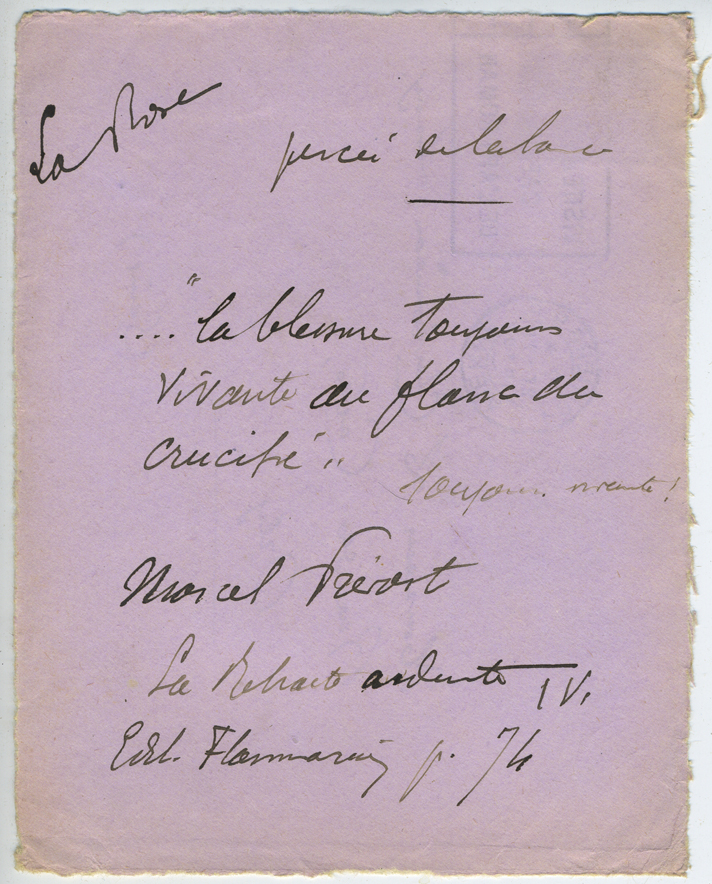 La Rose
percée de la lance
.... "la blessure toujours
vivante au flanc du
crucifié"..
toujours vivante!
Marcel Prévost
La Retraite ardente IV.
Edit. Flammarion p. 74